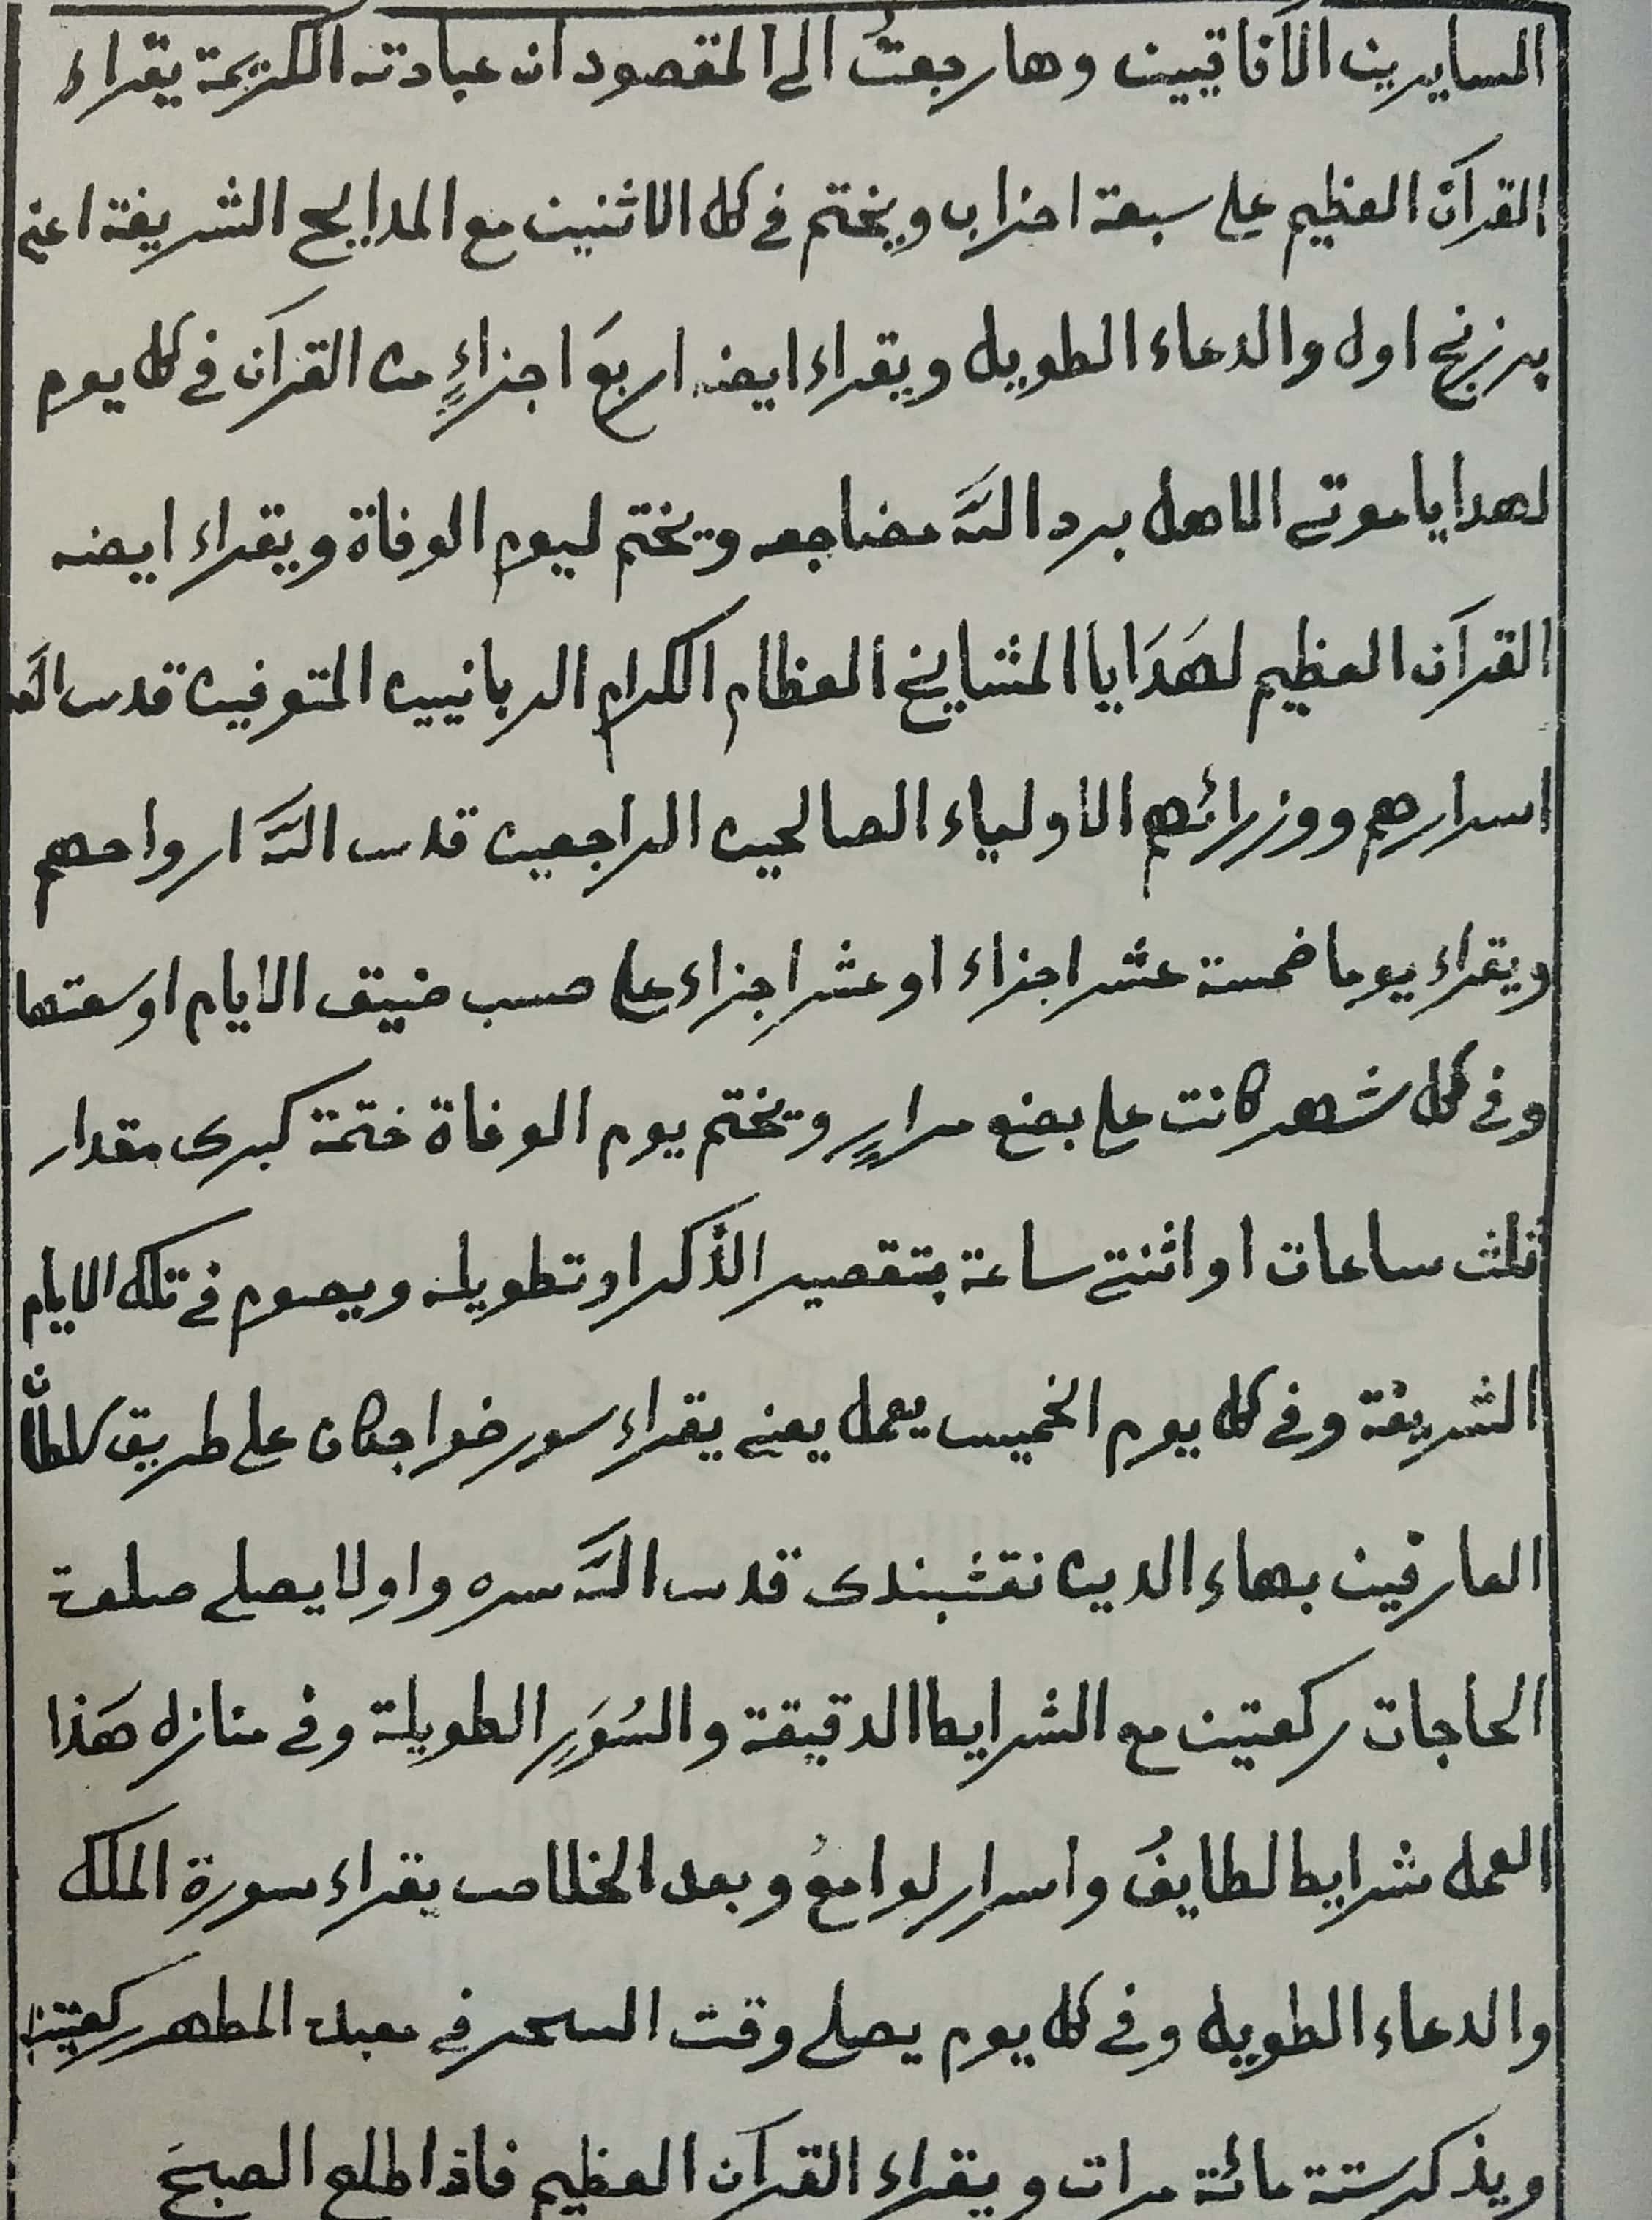 السايرين الآفاقيين وها رجعتُ الى المقصود ان عبادته الكريمة يقراء
القرآن العظيم على سبعة احزاب ويختم فى كل الاثنين مع المدايح الشريفة اعنى
برزنجى اول والدعاء الطويل ويقراء ايضا اربعَ اجزاءٍ من القرآن فى كل يوم
لهدايا موتى الاهل برد اللّه مضاجعه ويختم ليوم الوفاة ويقراء ايضا
القرآن العظيم لهَدَايا المشايخ العظام الكرام الربانيين المتوفين قدس اللّه
اسرارهم ووزرائهم الاولياء الصالحين الراجعين قدس اللّه ارواحهم
ويقراء يوما خمسة عشر اجزاء او عشر اجزاء على حسب ضيق الايام او سعتها
وفى كل شهر كانت على بضع مرارٍ ويختم يوم الوفاة ختمة كبرى مقدار
ثلث ساعات او اثنتى ساعة بتقصير الذكر او تطويله ويصوم فى تلك الايام
الشريفة وفى كل يوم الخميس يعمل يعنى يقراء سور خواجكان على طريق سلطان
العارفين بهاء الدين نقشبندى قدس اللّه سره واولا يصلى صلوة
الحاجات ركعتين مع الشرايط الدقيقة والسُوَرِ الطويلة وفى منازل هَذا
العمل شرايط لطايفُ واسرار لوامعُ وبعد الخلاص يقراء سورة الملك
والدعاء الطويل وفى كل يوم يصلى وقت السحر فى معبده المطهر ركعتين
ويذكر ستة مائة مرات ويقراء القرآن العظيم فاذا طلع الصبح